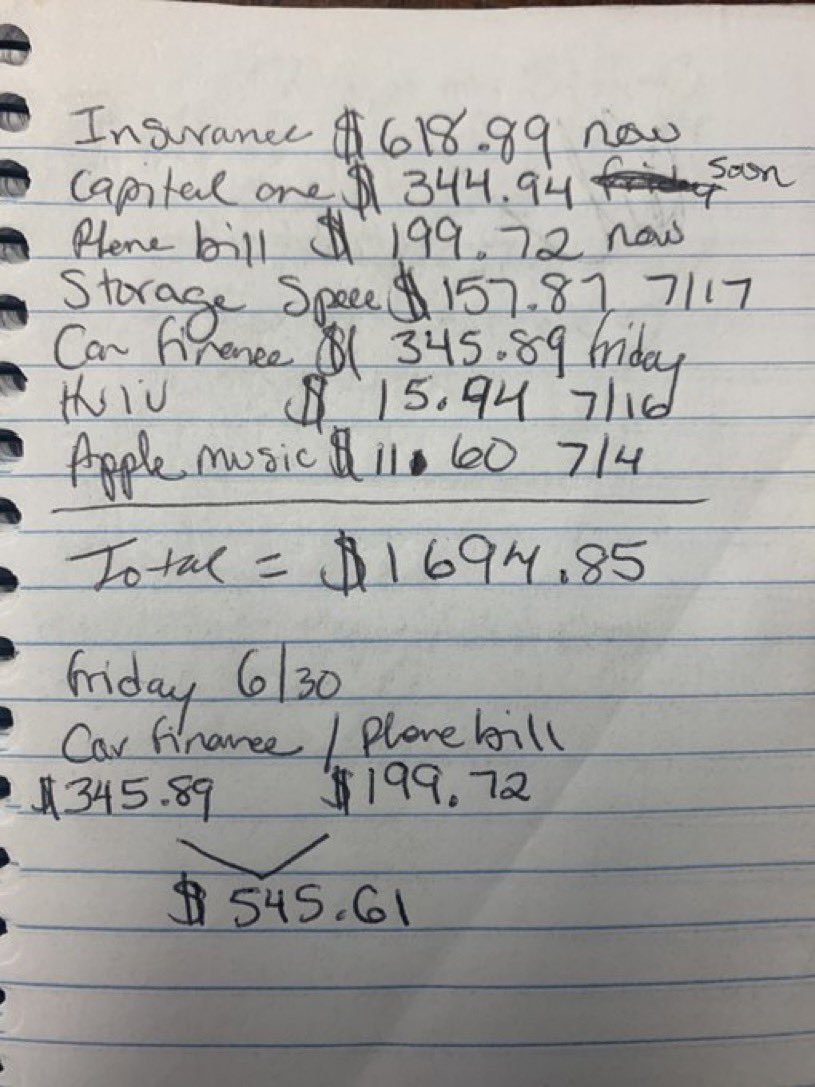 Insurance $618.89 now
Capital one $344.94 friday soon
Phone bill $199.72 now
Storage Space $157.87 7/17
Car finance $345.89 friday
Hulu $15.94 7/16
Apple music $11.60 7/4
Total = $1694.85
friday 6/30
Car finance / Phone bill
$345.89 $199.72
$545.61